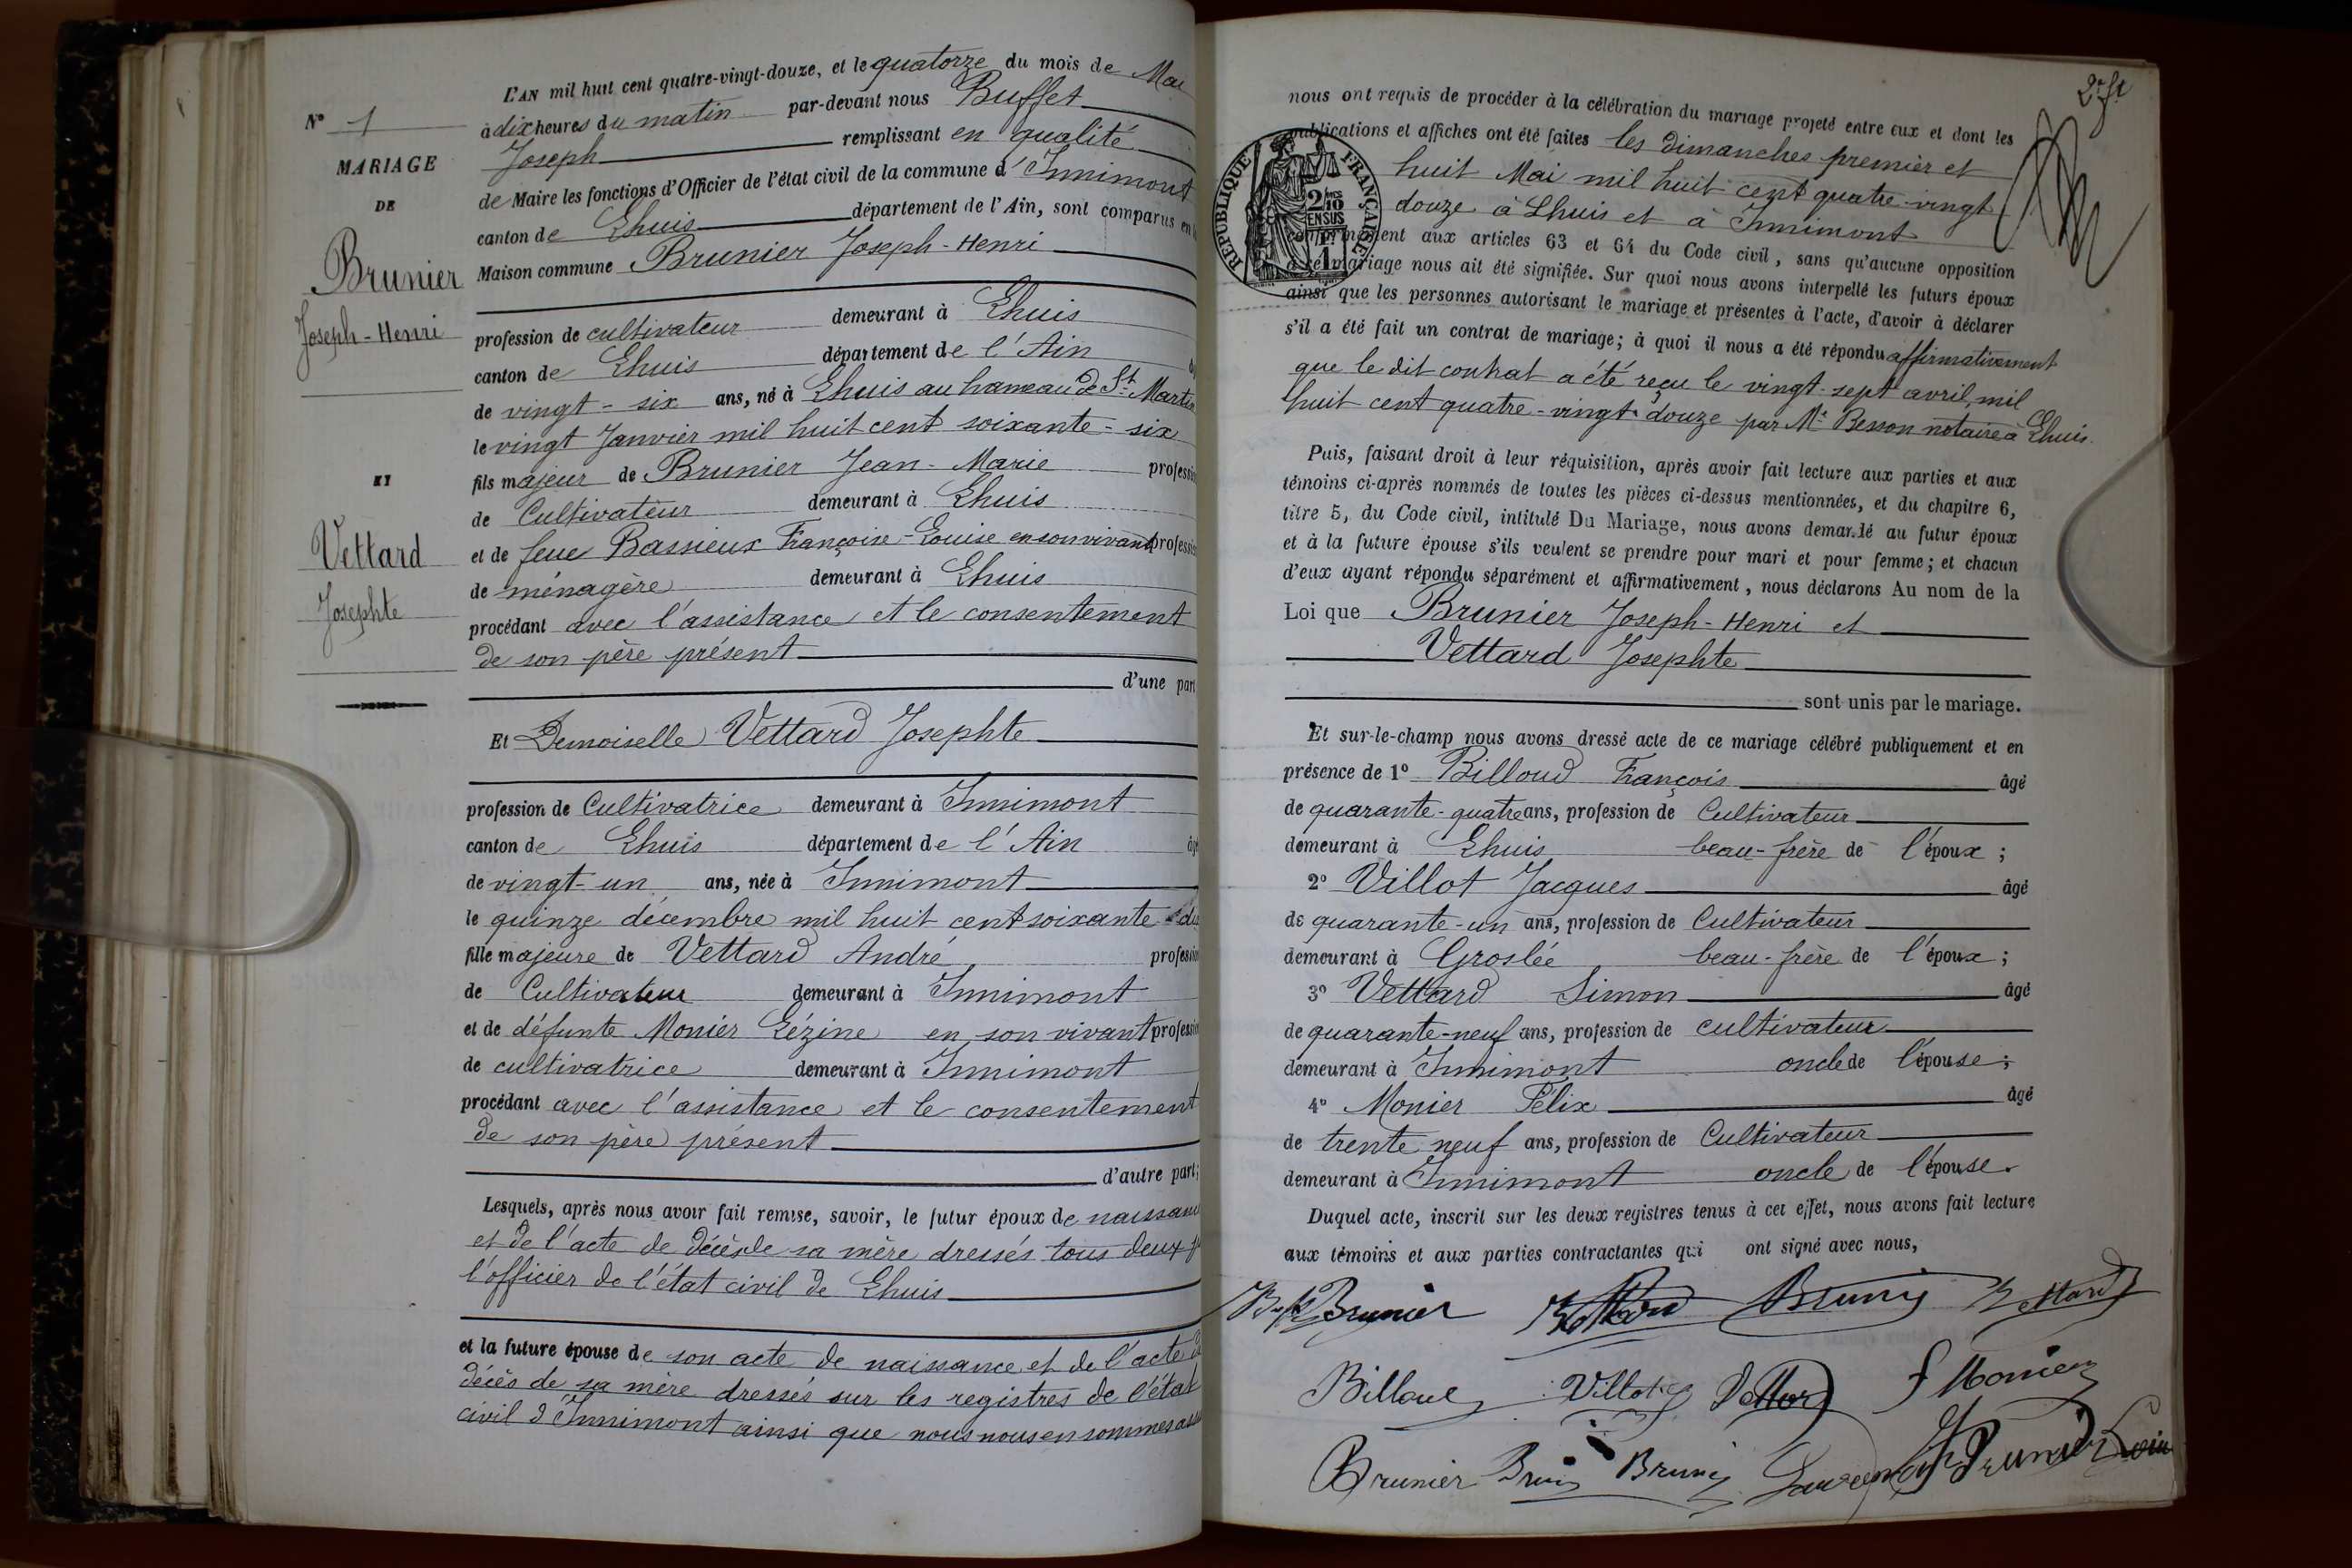 L'AN mil huit cent quatre-vingt-douze, et le quatorze du mois de Mai
à dix heures du matin par-devant nous Buffet
Joseph remplissant en qualité
de Maire les fonctions d'Officier de l'état civil de la commune d'Innimont
canton de Lhuis département de l'Ain, sont comparus en la
Maison commune Brunier Joseph-Henri
profession de cultivateur demeurant à Lhuis
canton de Lhuis département de l'Ain
de vingt-six ans, né à Lhuis au hameau de St Martin
le vingt Janvier mil huit cent soixante-six
fils majeur de Brunier Jean-Marie profession
de Cultivateur demeurant à Lhuis
et de feue Bassieux Françoise-Louise en son vivant profession
de ménagère demeurant à Lhuis
procédant avec l'assistance et le consentement
de son père présent
d'une part
Et Demoiselle Vettard Josephte
profession de Cultivatrice demeurant à Innimont
canton de Lhuis département de l'Ain âgé
de vingt-un ans, née à Innimont
le quinze décembre mil huit cent soixante-dix
fille majeure de Vettard André profession
de Cultivateur demeurant à Innimont
et de défunte Monier Lézine en son vivant profession
de cultivatrice demeurant à Innimont
procédant avec l'assistance et le consentement
de son père présent
d'autre part;
Lesquels, après nous avoir fait remise, savoir, le futur époux de naissance
et de l'acte de décès de sa mère dressés tous deux
l'officier de l'état civil de Lhuis
et la future épouse de son acte de naissance et de l'acte de
décès de sa mère dressés sur les registres de l'état
civil d'Innimont ainsi que nous nous en sommes
N° 1
MARIAGE
DE
Brunier
Joseph-Henri
ET
Vettard
Josephte
nous ont requis de procéder à la célébration du mariage projeté entre eux et dont les
publications et affiches ont été faites les dimanches premier et
huit Mai mil huit cent quatre-vingt
douze à Lhuis et à Innimont
conformément aux articles 63 et 64 du Code civil, sans qu'aucune opposition
à ce mariage nous ait été signifiée. Sur quoi nous avons interpellé les futurs époux
ainsi que les personnes autorisant le mariage et présentes à l'acte, d'avoir à déclarer
s'il a été fait un contrat de mariage; à quoi il nous a été répondu affirmativement
que le dit contrat a été reçu le vingt-sept avril, mil
huit cent quatre-vingt-douze par Me Besson notaire à Lhuis.
Puis, faisant droit à leur réquisition, après avoir fait lecture aux parties et aux
témoins ci-après nommés de toutes les pièces ci-dessus mentionnées, et du chapitre 6,
titre 5, du Code civil, intitulé Du Mariage, nous avons demandé au futur époux
et à la future épouse s'ils veulent se prendre pour mari et pour femme; et chacun
d'eux ayant répondu séparément et affirmativement, nous déclarons Au nom de la
Loi que Brunier Joseph-Henri et
Vettard Josephte
sont unis par le mariage.
Et sur-le-champ nous avons dressé acte de ce mariage célébré publiquement et en
présence de 1° Billoud François âgé
de quarante-quatre ans, profession de Cultivateur
demeurant à Lhuis beau-frère de l'époux;
2° Villot Jacques âgé
de quarante-un ans, profession de Cultivateur
demeurant à Groslée beau-frère de l'époux;
3° Vettard Simon âgé
de quarante-neuf ans, profession de cultivateur
demeurant à Innimont oncle de l'épouse;
4° Monier Félix âgé
de trente neuf ans, profession de Cultivateur
demeurant à Innimont oncle de l'épouse.
Duquel acte, inscrit sur les deux registres tenus à cet effet, nous avons fait lecture
aux témoins et aux parties contractantes qui ont signé avec nous,
Brunier Vettard Vettard
Billoud Villot Vettard F Monier
Brunier
RÉPUBLIQUE FRANÇAISE